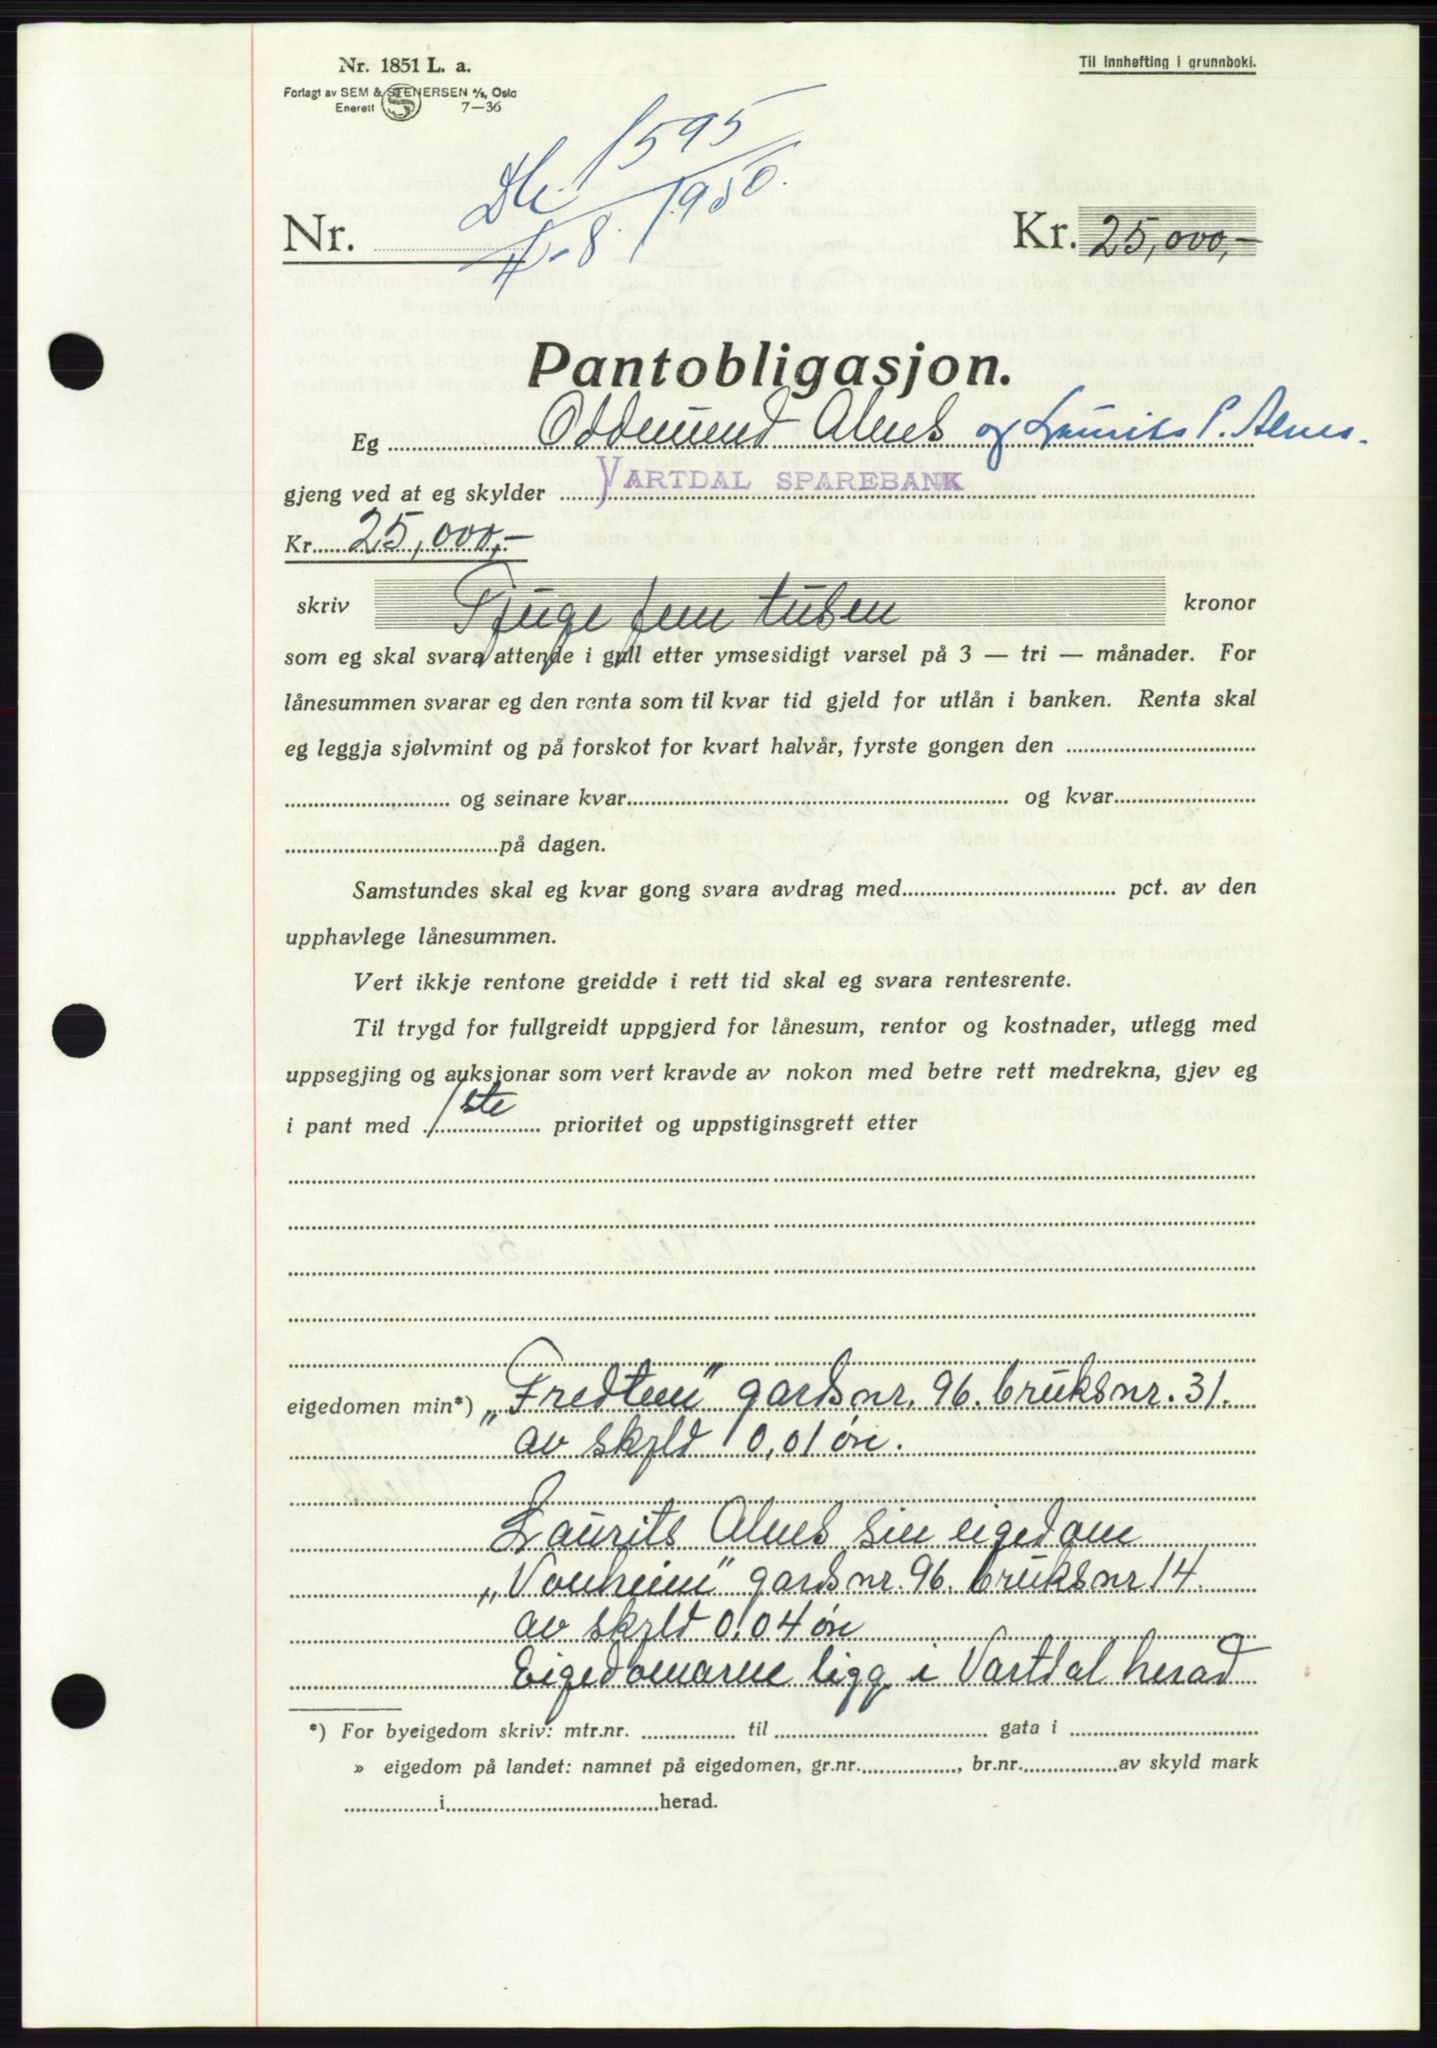 Nr. 1851 L. a.
Til innhefting i grunnboki.
Forlagt av SEM & STENERSEN A/s, Oslo
Enerett S 7—36
1595
1950.
Nr.
Kr. 25,000,-
Pantobligasjon.
Eg Oddmund Alnes og Laurits P. Alnes.
gjeng ved at eg skylder VARTDAL SPAREBANK
Kr. 25,000,-
skriv Tjuge fem tusen kronor
som eg skal svara attende i gull etter ymsesidigt varsel på 3 — tri — månader. For
lånesummen svarar eg den renta som til kvar tid gjeld for utlån i banken. Renta skal
eg leggja sjølvmint og på forskot for kvart halvår, fyrste gongen den
og seinare kvar og kvar
på dagen.
Samstundes skal eg kvar gong svara avdrag med pct. av den
upphavlege lånesummen.
Vert ikkje rentone greidde i rett tid skal eg svara rentesrente.
Til trygd for fullgreidt uppgjerd for lånesum, rentor og kostnader, utlegg med
uppsegjing og auksjonar som vert kravde av nokon med betre rett medrekna, gjev eg
i pant med 1ste prioritet og uppstiginsgrett etter
eigedomen min*) „Fredtun" gardsnr. 96. bruksnr. 31.
av skyld 0,01 øre.
Laurits Alnes sin eigedom
„Vonheim" gardsnr. 96. bruksnr 14.
av skyld 0,04 øre
Eigedomarne ligg i Vartdal herad
*) For byeigedom skriv: mtr.nr. til gata i
» eigedom på landet: namnet på eigedomen, gr.nr. , br.nr. av skyld mark
i herad.